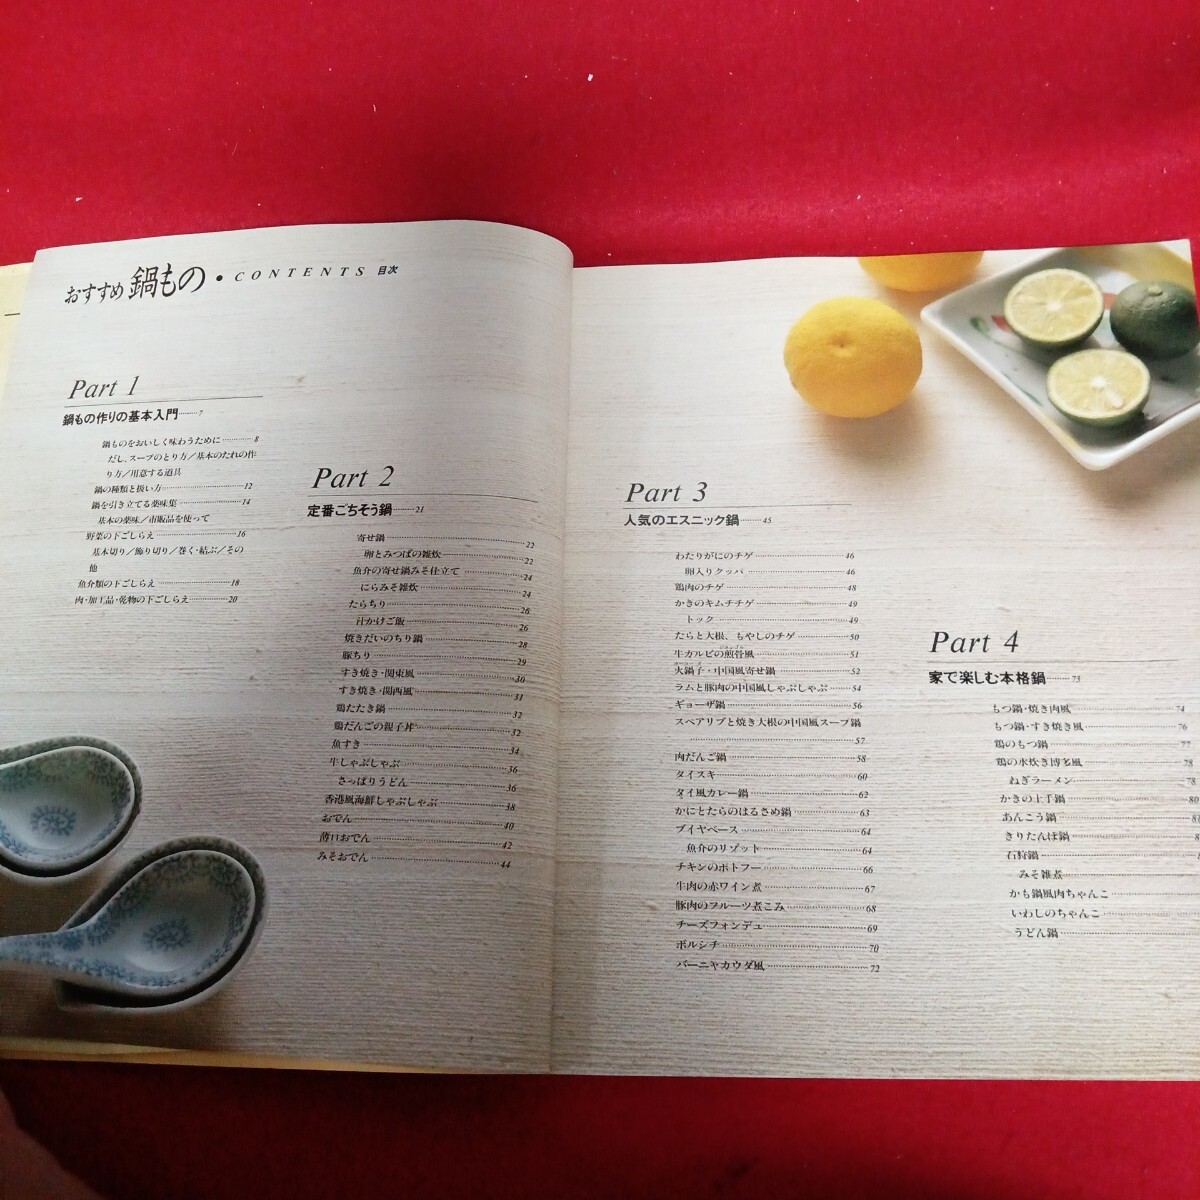 おすすめ 鍋もの • CONTENTS 目次
Part 1
鍋もの作りの基本入門………7
鍋ものをおいしく味わうために…………8
だし、スープのとり方／基本のたれの作
り方／用意する道具
鍋の種類と扱い方…………12
鍋を引き立てる薬味集…………14
基本の薬味／市販品を使って
野菜の下ごしらえ…………16
基本切り／飾り切り／巻く・結ぶ／その
他
魚介類の下ごしらえ…………18
肉・加工品・乾物の下ごしらえ…………20
Part 2
定番ごちそう鍋………21
寄せ鍋…………22
卵とみつばの雑炊…………22
魚介の寄せ鍋みそ仕立て…………24
にらみそ雑炊…………24
たらちり…………26
汁かけご飯…………26
焼きだいのちり鍋…………28
豚ちり…………29
すき焼き・関東風…………30
すき焼き・関西風…………31
鶏たたき鍋…………32
鶏だんごの親子丼…………32
魚すき…………34
牛しゃぶしゃぶ…………36
さっぱりうどん…………36
香港風海鮮しゃぶしゃぶ…………38
おでん…………40
薄口おでん…………42
みそおでん…………44
Part 3
人気のエスニック鍋………45
わたりがにのチゲ…………46
卵入りクッパ…………46
鶏肉のチゲ…………48
かきのキムチチゲ…………49
トック…………49
たらと大根、もやしのチゲ…………50
牛カルビの煎骨風…………51
火鍋子・中国風寄せ鍋…………52
ラムと豚肉の中国風しゃぶしゃぶ…………54
ギョーザ鍋…………56
スペアリブと焼き大根の中国風スープ鍋
…………57
肉だんご鍋…………58
タイスキ…………60
タイ風カレー鍋…………62
かにとたらのはるさめ鍋…………63
ブイヤベース…………64
魚介のリゾット…………64
チキンのポトフー…………66
牛肉の赤ワイン煮…………67
豚肉のフルーツ煮こみ…………68
チーズフォンデュ…………69
ボルシチ…………70
バーニャカウダ風…………72
Part 4
家で楽しむ本格鍋………73
もつ鍋・焼き肉風…………74
もつ鍋・すき焼き風…………76
鶏のもつ鍋…………77
鶏の水炊き博多風…………78
ねぎラーメン…………78
かきの土手鍋…………80
あんこう鍋…………
きりたんぽ鍋…………
石狩鍋…………
みそ雑煮…………
かも鍋風肉ちゃんこ…………
いわしのちゃんこ…………
うどん鍋…………